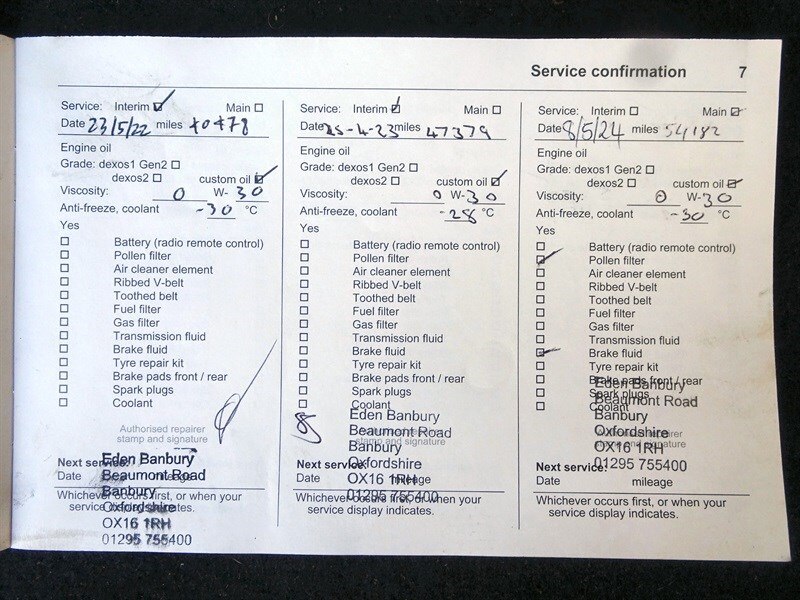 Service confirmation 7
Service: Interim Main
Date 23/5/22 miles 40478
Engine oil
Grade: dexos1 Gen2
dexos2 custom oil
Viscosity: 0 W- 30
Anti-freeze, coolant -30 °C
Yes
Battery (radio remote control)
Pollen filter
Air cleaner element
Ribbed V-belt
Toothed belt
Fuel filter
Gas filter
Transmission fluid
Brake fluid
Tyre repair kit
Brake pads front / rear
Spark plugs
Coolant
Authorised repairer
stamp and signature
Eden Banbury
Beaumont Road
Banbury
Oxfordshire
OX16 1RH
01295 755400
Next service:
Date mileage
Whichever occurs first, or when your
service display indicates.
Service: Interim Main
Date 25-4-23 miles 47379
Engine oil
Grade: dexos1 Gen2
dexos2 custom oil
Viscosity: 0 W- 30
Anti-freeze, coolant -28 °C
Yes
Battery (radio remote control)
Pollen filter
Air cleaner element
Ribbed V-belt
Toothed belt
Fuel filter
Gas filter
Transmission fluid
Brake fluid
Tyre repair kit
Brake pads front / rear
Spark plugs
Coolant
stamp and signature
Eden Banbury
Beaumont Road
Banbury
Oxfordshire
OX16 1RH
01295 755400
Next service:
Date mileage
Whichever occurs first, or when your
service display indicates.
Service: Interim Main
Date 8/5/24 miles 54182
Engine oil
Grade: dexos1 Gen2
dexos2 custom oil
Viscosity: 0 W- 30
Anti-freeze, coolant -30 °C
Yes
Battery (radio remote control)
Pollen filter
Air cleaner element
Ribbed V-belt
Toothed belt
Fuel filter
Gas filter
Transmission fluid
Brake fluid
Tyre repair kit
Brake pads front / rear
Spark plugs
Coolant
repairer
stamp and signature
Eden Banbury
Beaumont Road
Banbury
Oxfordshire
OX16 1RH
01295 755400
Next service:
Date mileage
Whichever occurs first, or when your
service display indicates.